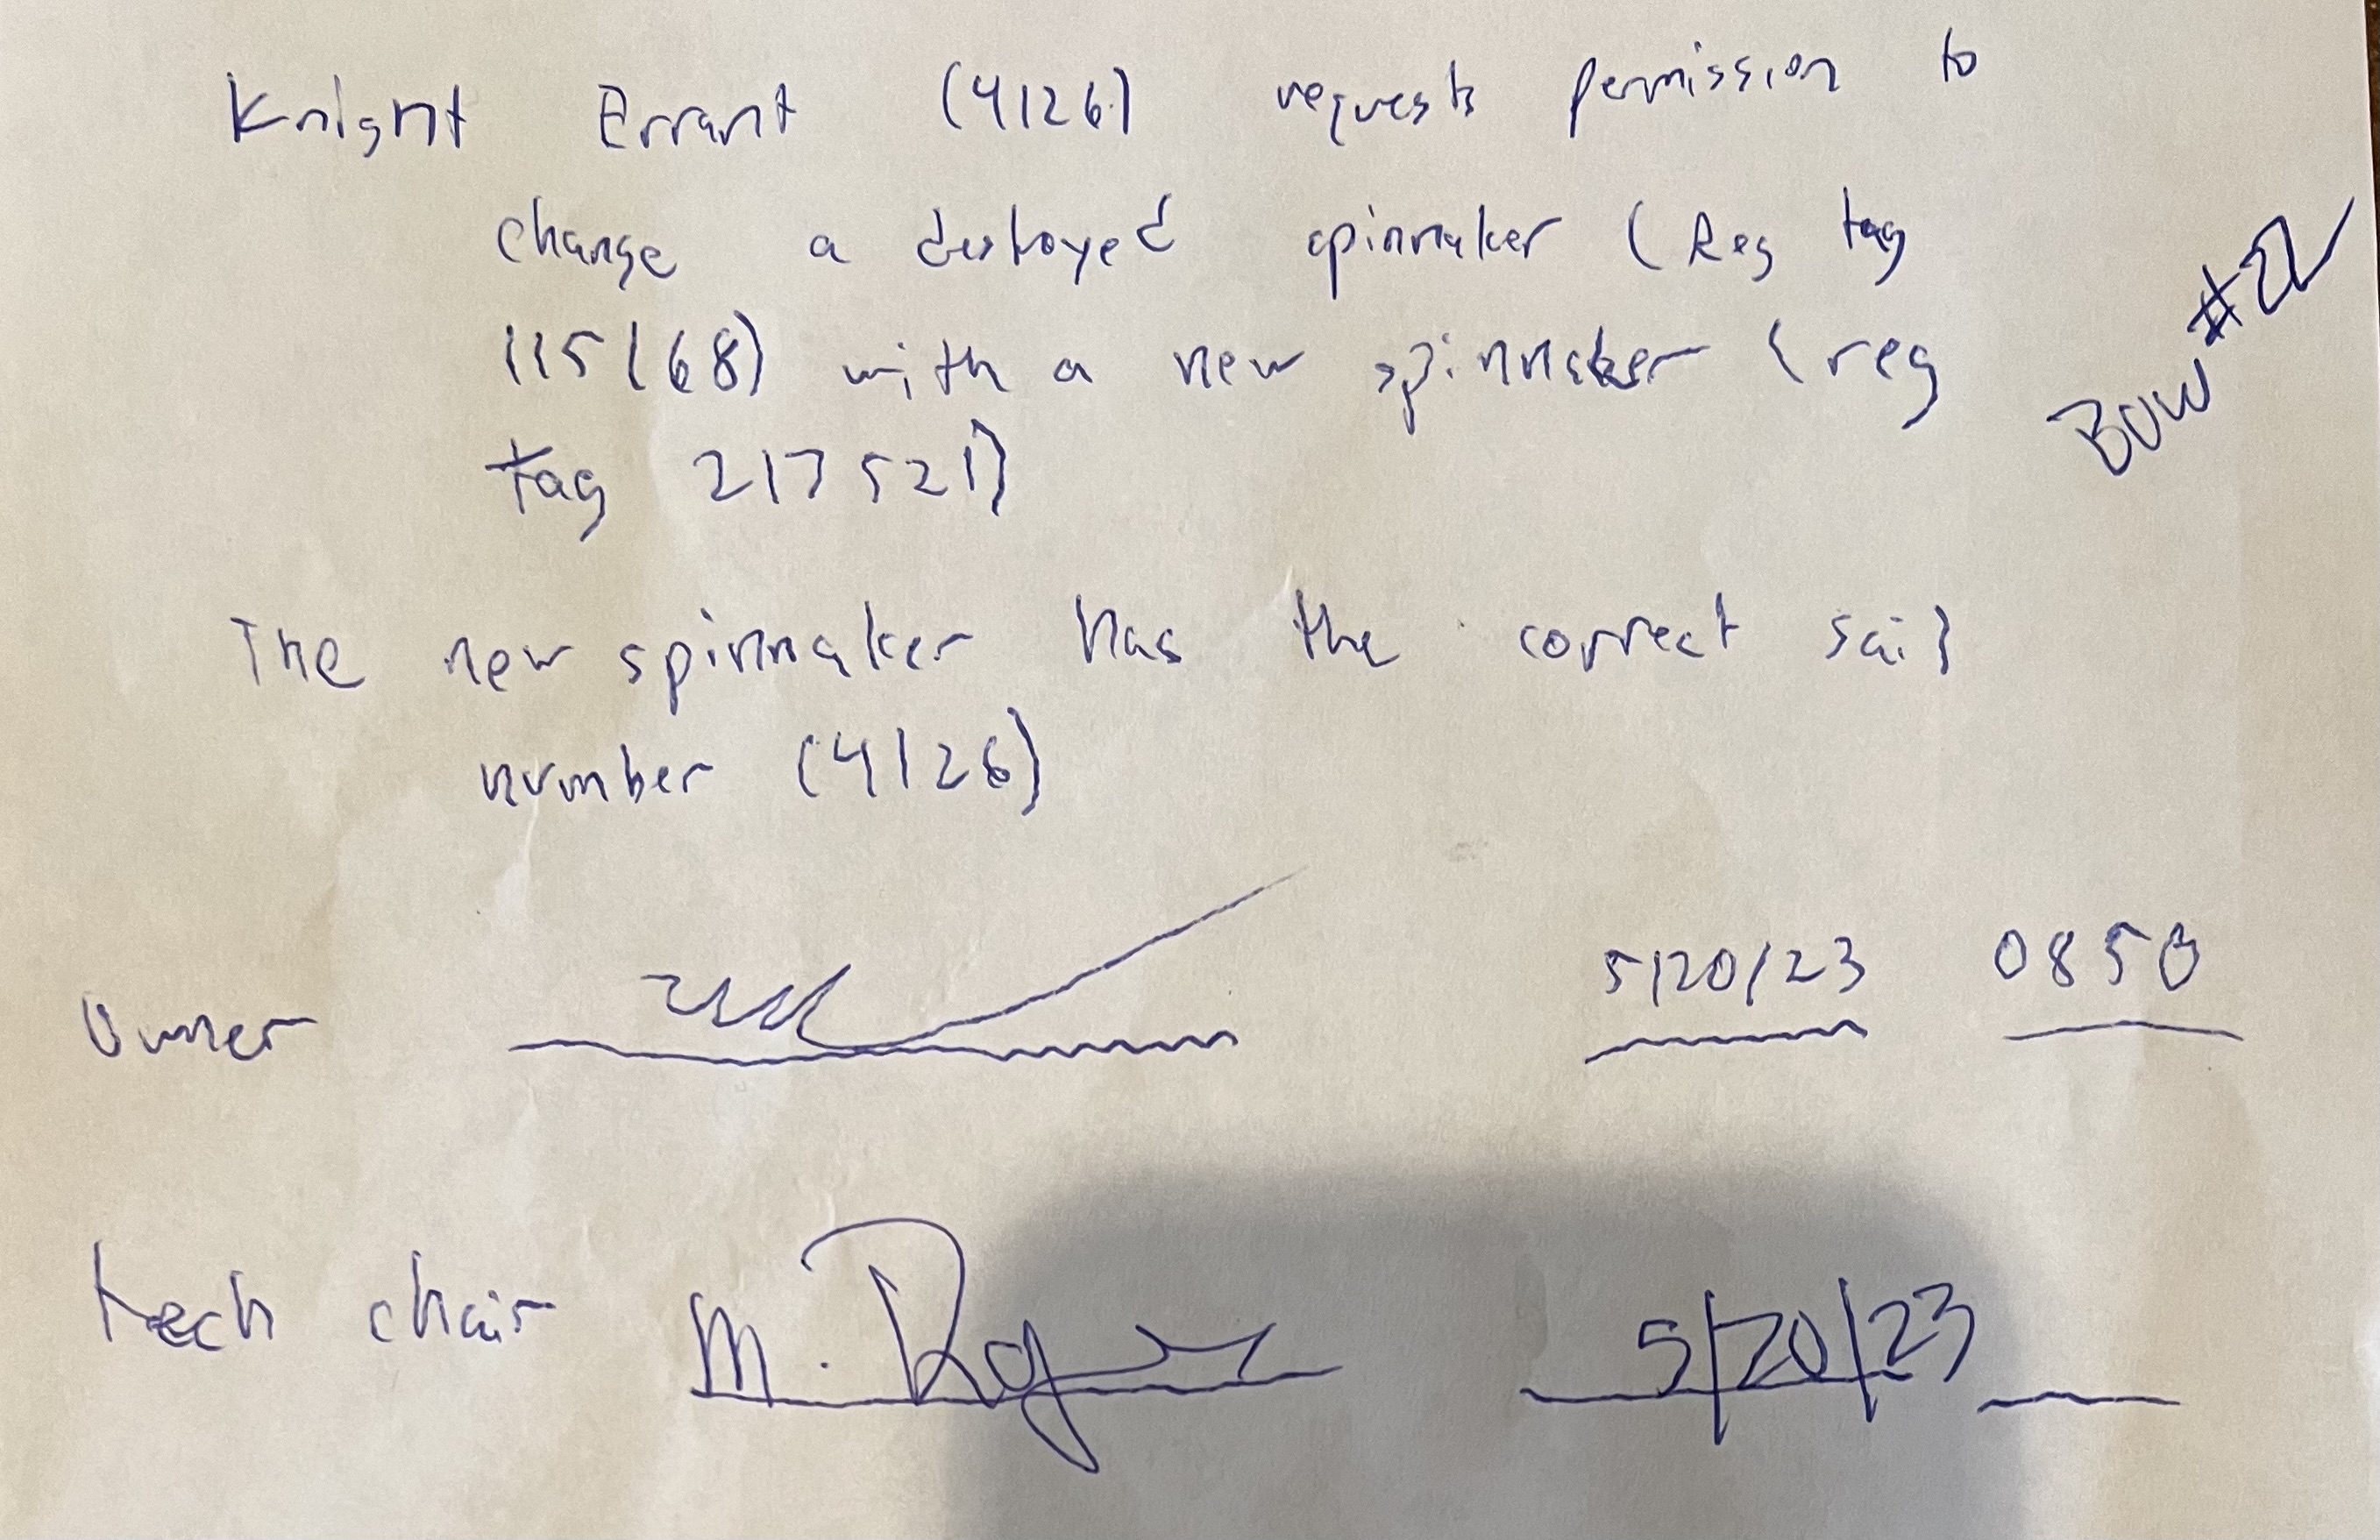 Knight Errant (4126) requests permission to
change a destroyed spinnaker (Reg tag
115168) with a new spinnaker (reg
tag 217521)
Bow #22
The new spinnaker has the correct sail
number (4126)
Owner 5/20/23 0850
tech chair M. 5/20/23